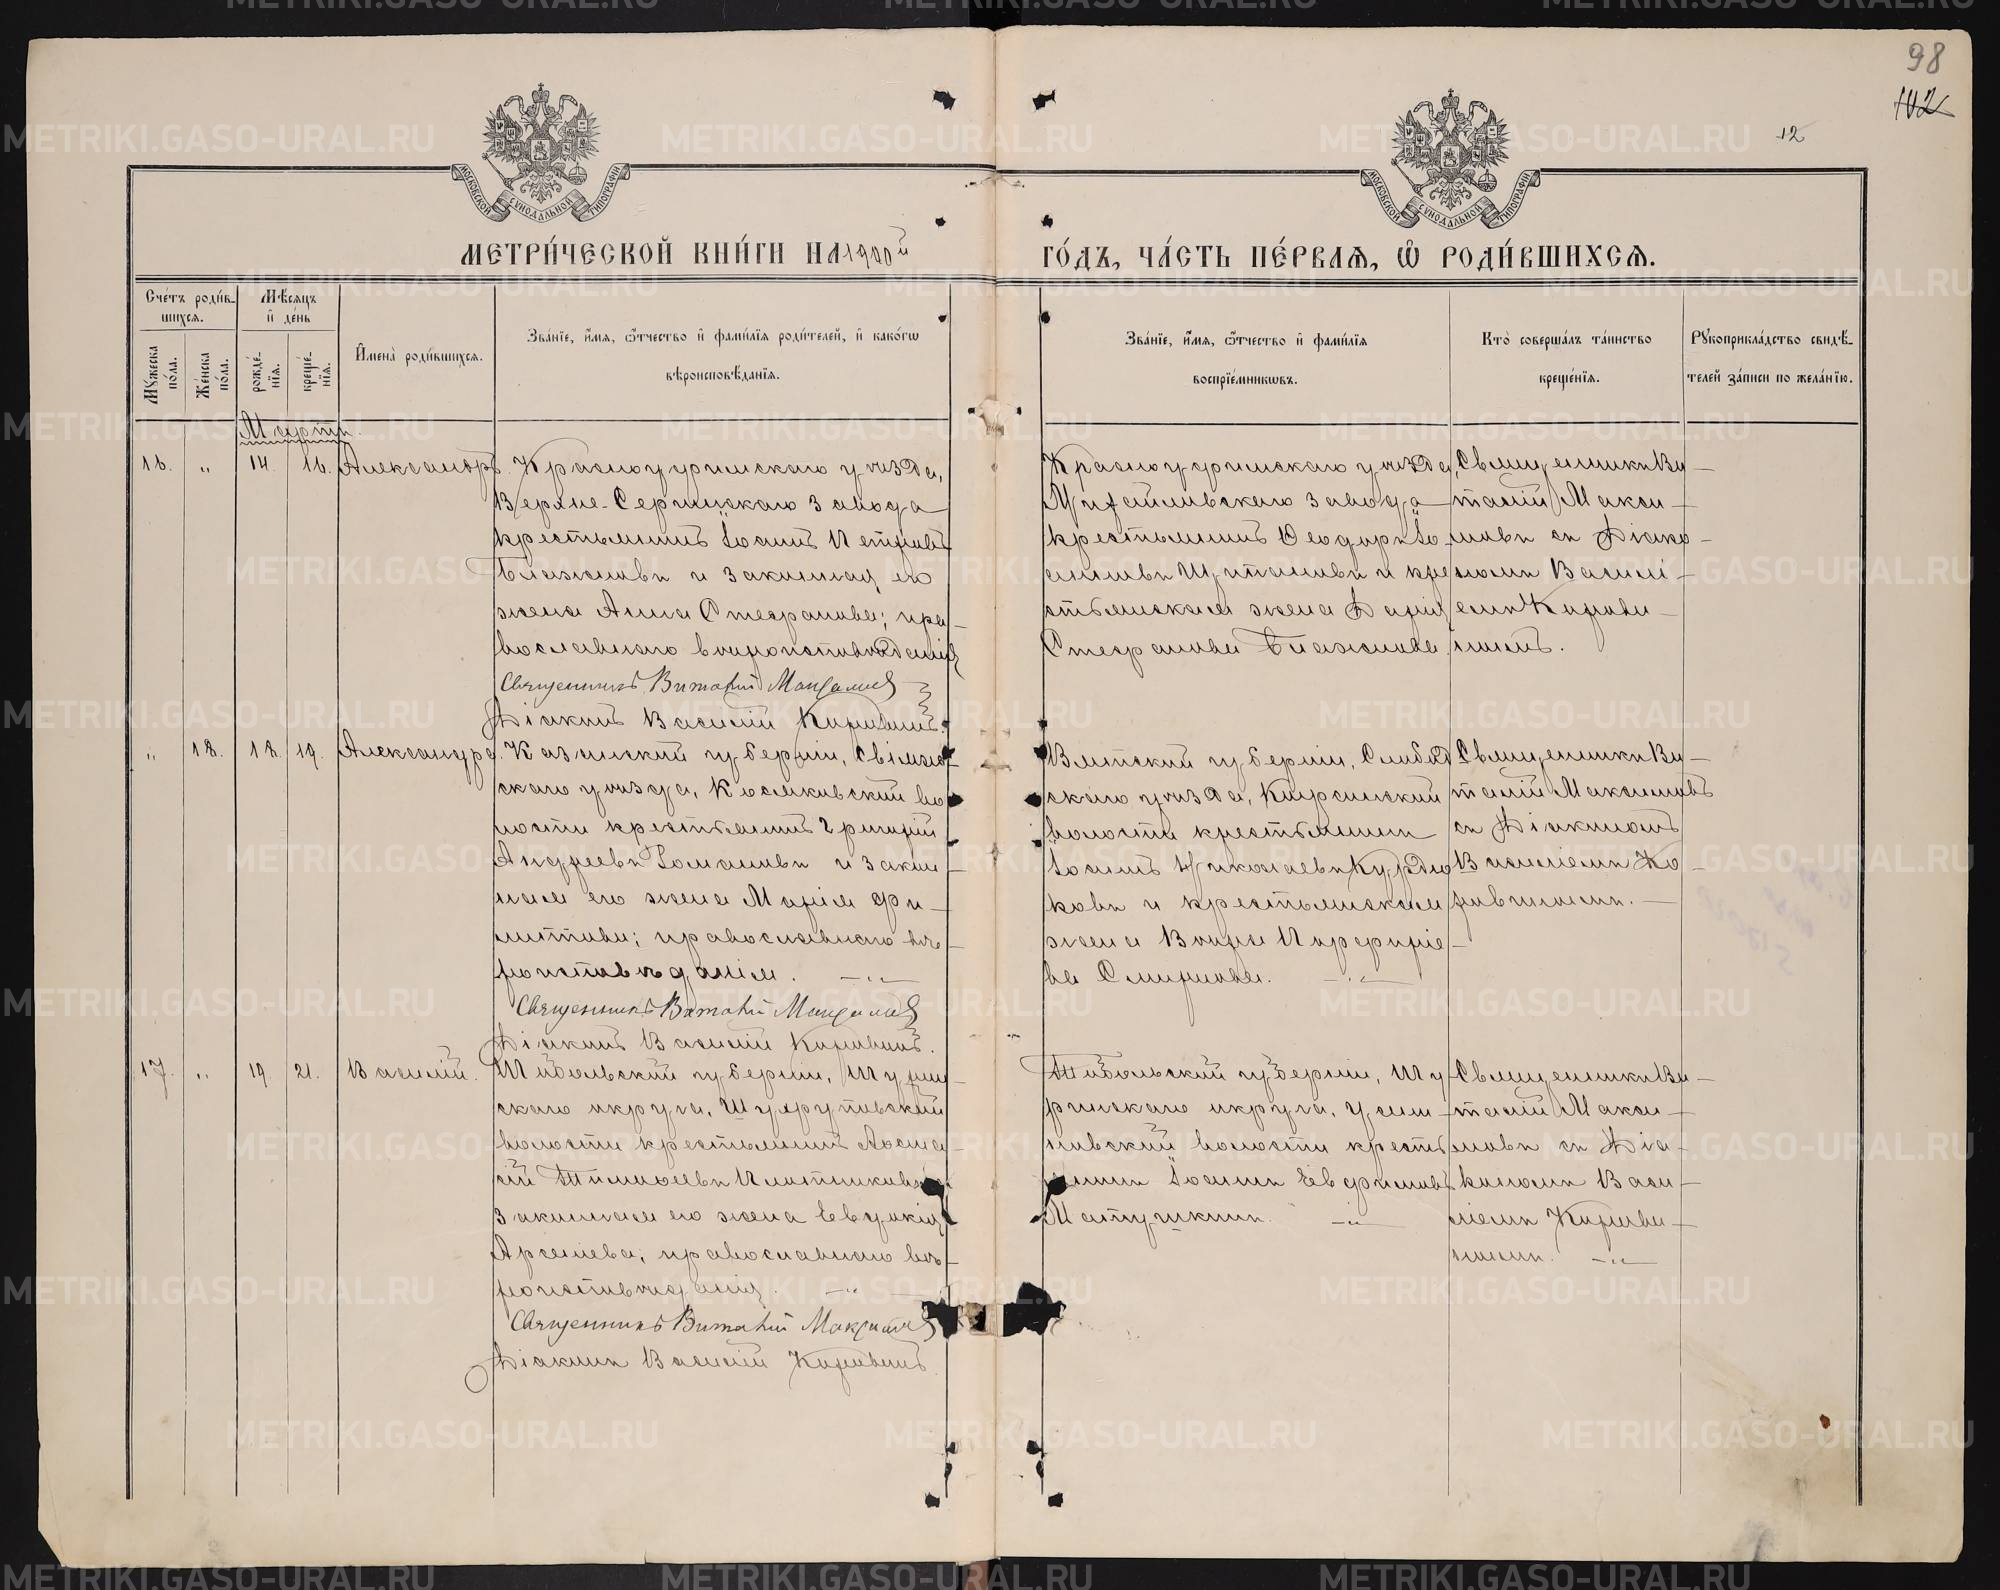 98
102
12
МОСКОВСКОЙ СѴНОДАЛЬНОЙ ТИПОГРАФІИ
МОСКОВСКОЙ СѴНОДАЛЬНОЙ ТИПОГРАФІИ
МЕТРИ́ЧЕСКОЙ КНИ́ГИ НА 1900й ГО́ДЪ, ЧА́СТЬ ПЕ́РВАЯ, Ѡ РОДИ́ВШИХСЯ.
Сче́тъ роди́в-
шихся.
Му́жеска по́ла.
Же́нска по́ла.
Мѣ́сяцъ
и де́нь
рожде́-
нїя.
креще́-
нїя.
Имена̀ роди́вшихся.
Зва́нїе, и́мя, ѻ҆́тчество и фами́лїя роди́телей, и како́гѡ
вѣроисповѣ́данїя.
Зва́нїе, и́мя, ѻ҆́тчество и фами́лїя
воспрїе́мникѡвъ.
Кто̀ соверша́лъ та́инство
креще́нїя.
Рукоприкла́дство свидѣ́-
телей за́писи по жела́нїю.
Мартъ.
16. „ 14. 16. Александръ.
Красноуфимскаго уѣзда,
Верхне-Сергинскаго Завода
крестьянинъ Іоаннъ Петровъ
Блажновъ и законная его
жена Анна Стефанова; пра-
вославнаго вѣроисповѣданія
Священникъ Виталій Максимовъ
Діаконъ Василій
Красноуфимскаго уѣзда,
Михайловскаго Завода
крестьянинъ Ѳеодоръ Іо-
анновъ и кре
стьянская жена Дарія
Стефанова Блажнова.
Священникъ Ви-
талій Макси-
мовъ съ Діако-
номъ Васили-
емъ
„ 18. 18. 19. Александра.
Казанской губерніи, Свіяж-
скаго уѣзда, во
лости крестьянинъ Григорій
Андреевъ Романовъ и закон-
ная его жена Марія Фи-
липпова; православнаго вѣ-
роисповѣданія.
Священникъ Виталій Максимовъ
Діаконъ Василій
Вятской губерніи, Слобод
скаго уѣзда, Кирсинской
волости крестьянинъ
Іоаннъ Николаевъ Курдю
ковъ и крестьянская
жена Вѣра Порфирie-
ва Смирнова.
Священникъ Ви-
талій Максимовъ
съ Діакономъ
Василіемъ
17. „ 19. 21. Василій.
Тобольской губерніи, Турин-
скаго округа,
волости крестьянинъ
Тимоѳеевъ Плотниковъ и
законная его жена Евдокія
Арсеніева; православнаго вѣ-
роисповѣданія.
Священникъ Виталій Максимовъ
Діаконъ Василій
Тобольской губерніи, Ту-
ринскаго округа,
волости кресть
янинъ Іоаннъ Евфимовъ
Матушкинъ.
Священникъ Ви-
талій Макси-
мовъ съ Діа-
кономъ Васи-
ліемъ
METRIKI.GASO-URAL.RU